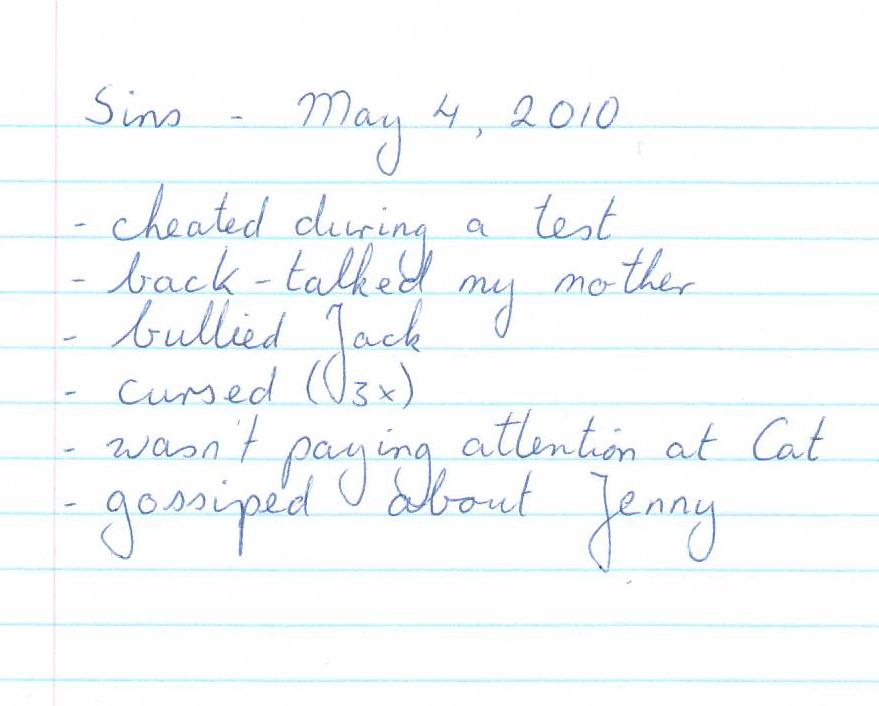 Sins - May 4, 2010
- cheated during a test
- back-talked my mother
- bullied Jack
- cursed (3x)
- wasn't paying attention at Cat
- gossiped about Jenny